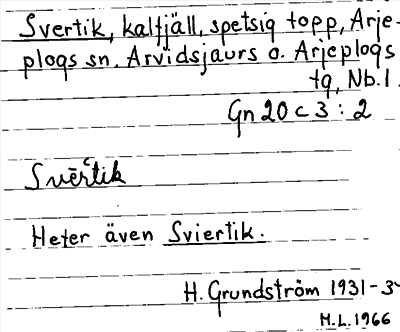 Svertik, kalfjäll, spetsig topp, Arje-
plogs sn. Arvidsjaurs o. Arjeplogs
tg, Nb. l.
Gn 20 c 3 : 2
Heter även Sviertik.
H. Grundström 1931-3
M.L. 1966